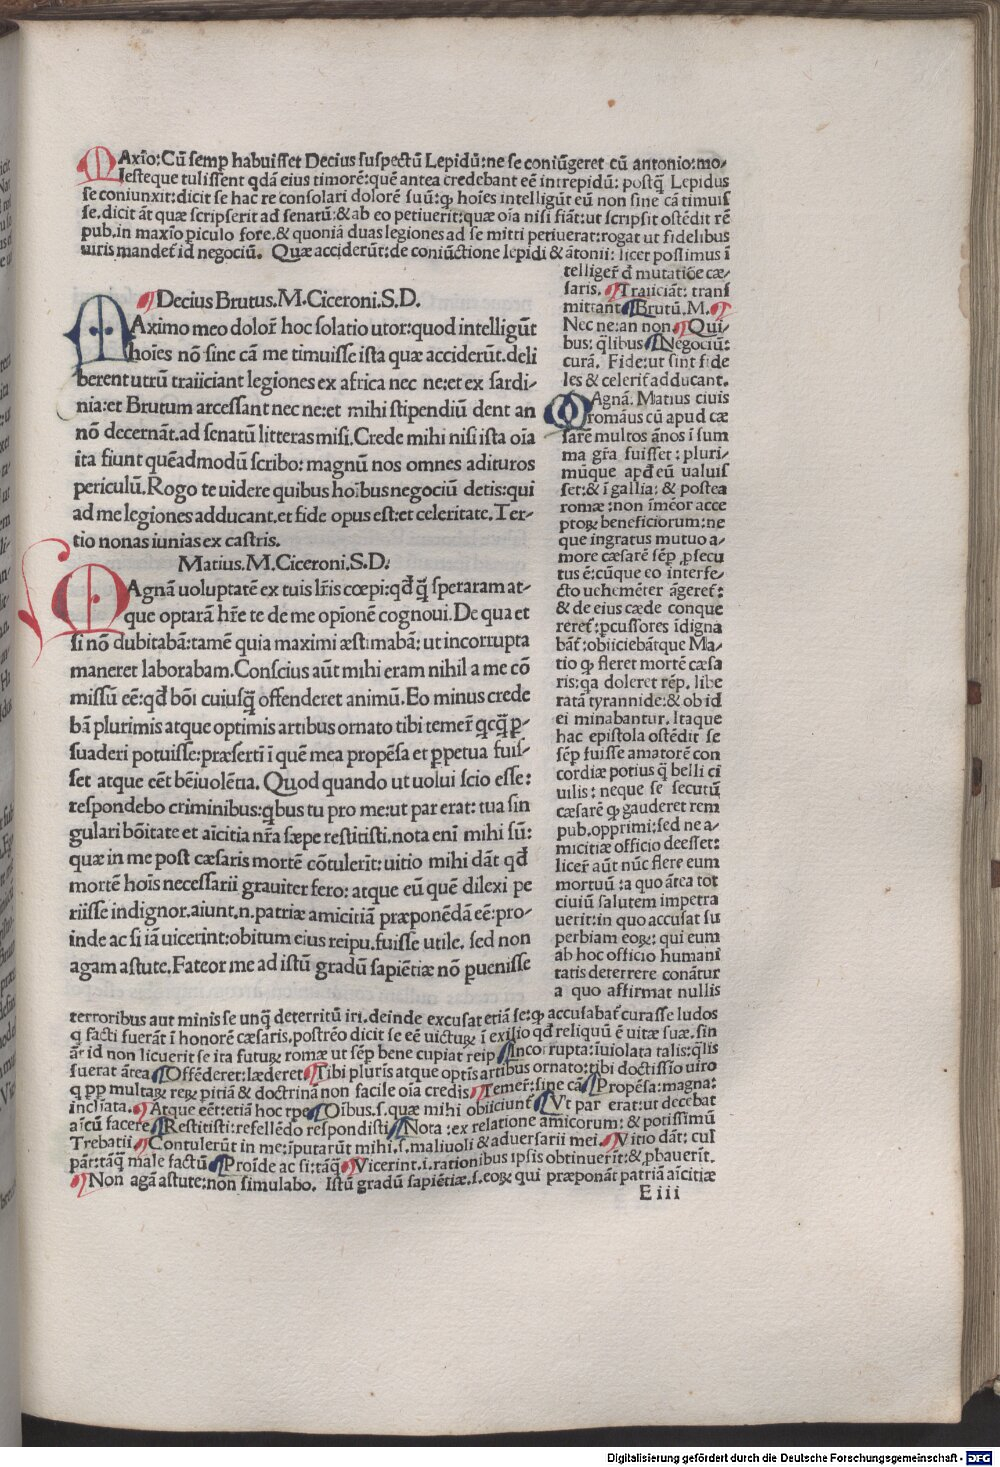 MAxīo: Cū semp habuisset Decius suspectū Lepidū: ne se coniūgeret cū antonio: mo-
lesteque tulissent qdā eius timorē: quē antea credebant eē intrepidū: postq̄ Lepidus
se coniunxit: dicit se hac re consolari dolorē suū: ꝙ hoīes intelligūt eū non sine cā timuis
se. dicit āt quæ scripserit ad senatū: & ab eo petiuerit: quæ oīa nisi fiāt: ut scripsit ostēdit rē
pub. in maxīo piculo fore. & quoniā duas legiones ad se mitti petiuerat: rogat ut fidelibus
uiris mandet id negociū. Quæ acciderūt: de coniūctione lepidi & ātonii: licet possimus ī
telliger̄ đ mutatiōe cæ-
saris. Traiiciāt: trans
mittant Brutū. M.
Nec ne: an non Qui-
bus: q̄libus Negociū:
curā. Fide: ut sint fide
les & celerit̄ adducant.
Decius Brutus. M. Ciceroni. S. D.
MAximo meo dolor̄ hoc solatio utor: quod intelligūt
hoīes nō sine cā me timuisse ista quæ acciderūt. deli
berent utrū traiiciant legiones ex africa nec ne: et ex sardi-
nia: et Brutum arcessant nec ne: et mihi stipendiū dent an
nō decernāt. ad senatū litteras misi. Crede mihi nisi ista oīa
ita fiunt quēadmodū scribo: magnū nos omnes adituros
periculū. Rogo te uidere quibus hoībus negociū detis: qui
ad me legiones adducant. et fide opus est: et celeritate. Ter-
tio nonas iunias ex castris.
Matius. M. Ciceroni. S. D.
MAgnā uoluptatē ex tuis lr̄is cœpi: qđ q̄ speraram at-
que optarā hr̄e te de me opīonē cognoui. De qua et
si nō dubitabā: tamē quia maximi æstimabā: ut incorrupta
maneret laborabam. Conscius aūt mihi eram nihil a me cō
missū eē: qđ bōi cuiusq̄ offenderet animū. Eo minus crede
bā plurimis atque optimis artibus ornato tibi temer̄ qcq̄ ꝑ-
suaderi potuisse: præsertī ī quē mea propēsa et ꝑpetua fuis-
set atque eēt bēiuolētia. Quod quando ut uolui scio esse:
respondebo criminibus: qbus tu pro me: ut par erat: tua sin
gulari bōitate et aīcitia nr̄a sæpe restitisti. nota enī mihi sū:
quæ in me post cæsaris mortē cōtulerīt: uitio mihi dāt qđ
mortē hoīs necessarii grauiter fero: atque eū quē dilexi pe
riisse indignor. aiunt. n. patriæ amicitiā præponēdā eē: pro-
inde ac si iā uicerint: obitum eius reipu. fuisse utile. sed non
agam astute. Fateor me ad istū gradū sapiētiæ nō ꝑuenisse
MAgnā. Matius ciuis
romāus cū apud cæ
sarē multos ānos ī sum
ma grā fuisset: pluri-
mūque apđ eū ualuis
set: & ī gallia: & postea
romæ: non īmēor acce
ptoꝝ beneficiorum: ne
que ingratus mutuo a-
more cæsarē sēp ꝓsecu
tus ē: cūque eo interfe-
cto uehemēter āgeret:
& de eius cæde conque
reret: pcussores īdigna
bāt: obiiciebātque Ma-
tio ꝙ fleret mortē cæsa
ris: qa doleret rēp. libe
ratā tyrannide: & ob id
ei minabantur. Itaque
hac epistola ostēdit se
sēp fuisse amatorē con
cordiæ potius q̄ belli ci
uilis: neque se secutū
cæsarē ꝙ gauderet rem
pub. opprimi: sed ne a-
micitiæ officio deesset:
licet aūt nūc flere eum
mortuū: a quo āt̄ea tot
ciuiū salutem impetra
uerit: in quo accusat su
perbiam eoꝝ: qui eum
ab hoc officio humani
tatis deterrere conātur
a quo affirmat nullis
terroribus aut minis se unq̄ deterritū iri. deinde excusat etiā se: ꝙ accusabat̄ curasse ludos
q facti fuerāt ī honorē cæsaris. postrēo dicit se eē uictuꝝ ī exilio qđ reliquū ē uitæ suæ. sin
āt id non licuerit se ita futuꝝ romæ ut sēp bene cupiat reip Incorrupta: īuiolata talis: q̄lis
fuerat āt̄ea Offēderet: læderet Tibi pluris atque optīs artibus ornato: tibi doctissīo uiro
q pp multaꝝ reꝝ pitiā & doctrinā non facile oīa credis Temer̄: sine cā Propēsa: magna:
incliata. Atque eēt: etiā hoc tpe Oībus. s. quæ mihi obiiciunt Vt par erat: ut decebat
aīcū facere Restitisti: refellēdo respondisti Nota: ex relatione amicorum: & potissimū
Trebatii Contulerūt in me: īputarūt mihi. s. maliuoli & aduersarii mei Vitio dāt: cul
pāt: tāq̄ male factū Proīde ac si: tāq̄ Vicerint. i. rationibus ipsis obtinuerīt: & ꝓbauerīt.
Non agā astute: non simulabo. Istū gradū sapiētiæ. s. eoꝝ qui præponāt patriā aīcitiæ
E iii
Digitalisierung gefördert durch die Deutsche Forschungsgemeinschaft - DFG